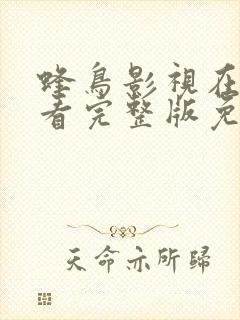 蜂鳥影視在
看完整版免
天命亦所歸